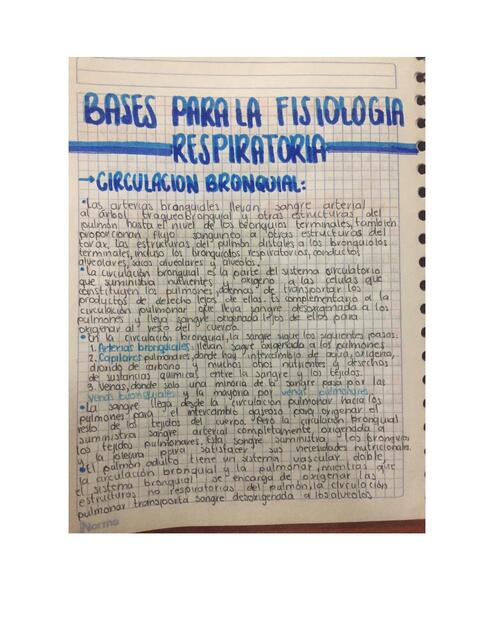 BASES PARA LA FISIOLOGIA
RESPIRATORIA
→CIRCULACION BRONQUIAL:
•Las arterias bronquiales llevan sangre arterial
al árbol traqueobronquial y otras estructuras del
pulmón hasta el nivel de los bronquios terminales, también
proporcionan flujo sanguíneo a otras estructuras del
torax. Las estructuras del pulmón distales a los bronquiolos
terminales, incluso los bronquiolos respiratorios, conductos
alveolares, sacos alveolares y alveolos.
•La circulación bronquial es la parte del sistema circulatorio
que suministra nutrientes oxigeno a las celulas que
constituyen la pulmones, ademas de transportar los
productos de desecho lejos de ellas. Es complementario a la
circulación pulmonar que lleva sangre desoxigenada a los
pulmones y lleva sangre oxigenada lejos de ellos para
oxigenar al resto del cuerpo.
•En la circulación bronquial, la sangre sigue los siguientes pasos:
1. Arterias bronquiales: llevan sagre oxigenada a los pulmones
2. Capilares pulmonares, donde hay intercambio de agua, oxigeno,
dioxido de carbono y muchos otros nutrientes y desechos
de sustancias quimicas entre la sangre y los tejidos.
3. Venas, donde solo una minoria de la sangre pasa por las
Venas bronquiales y la mayoria por venas pulmonares.
•La sangre llega desde la circulación pulmonar hacia los
pulmones para el intercambio gaseoso para oxigenar el
resto de los tejidos del cuerpo. Pero la circulación bronquial
suministra sangre arterial completamente oxigenada a
los tejidos pulmonares. Esta sangre suministra a los bronquios
y la pleura para satisfacer sus necesidades nutricionales.
•El pulmón adulto tiene un sistema vascular doble,
la circulación bronquial y la pulmonar, mientras que
el sistema bronquial se encarga de oxigenar las
estructuras no respiratorias del pulmón, la circulación
pulmonar transporta sangre desoxigenada a los alveolos
Norma